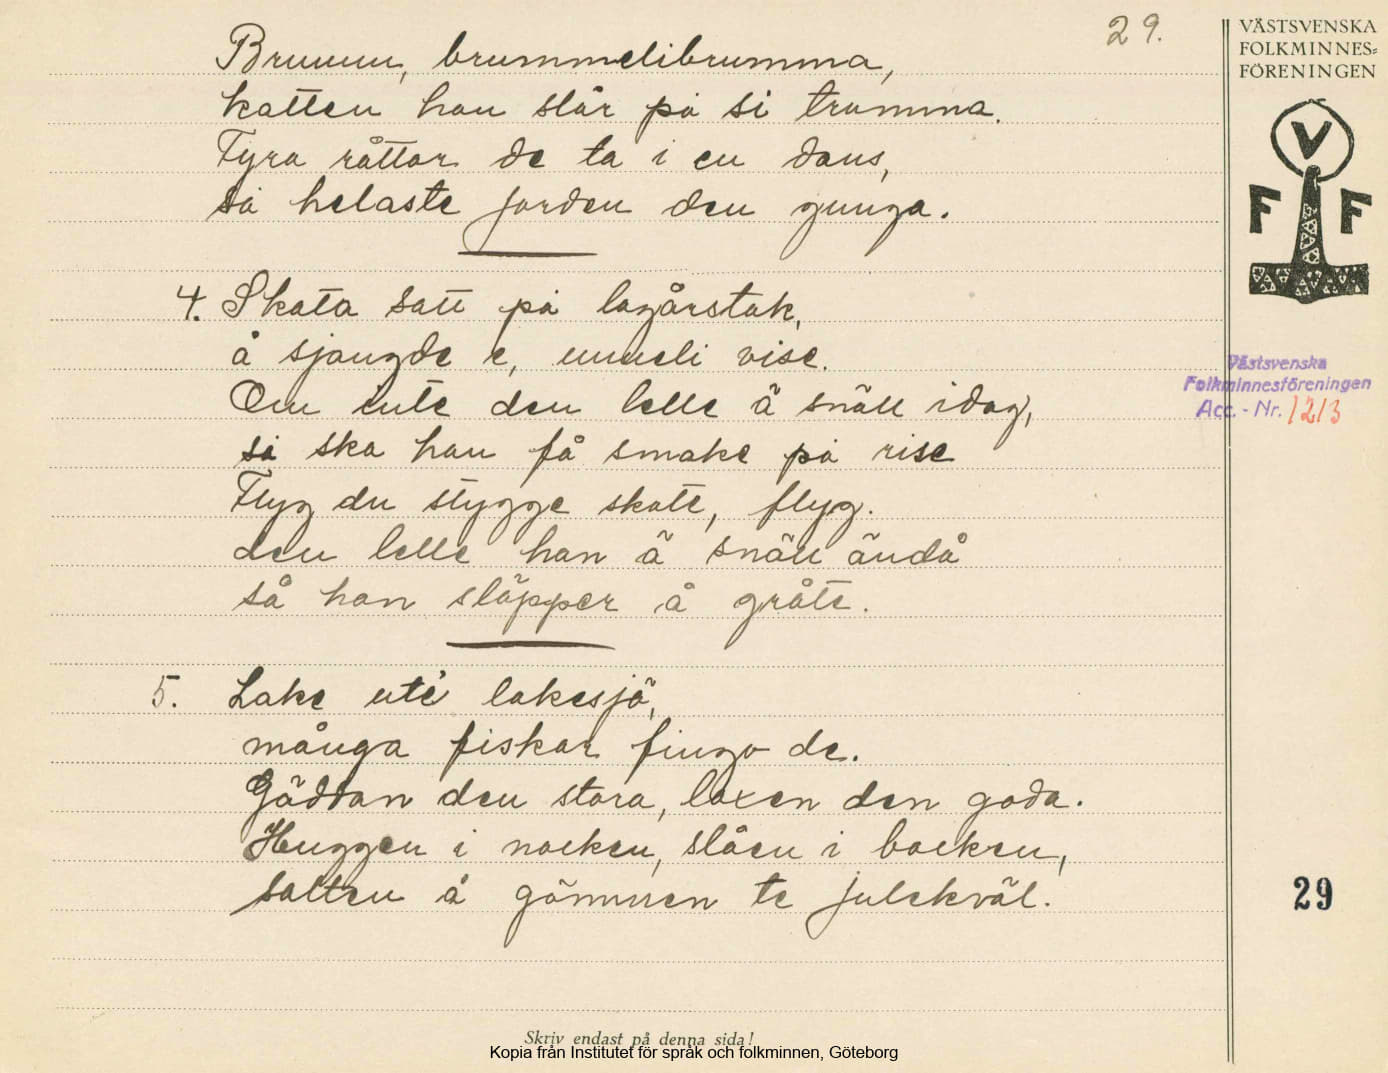 29.
VÄSTSVENSKA
FOLKMINNES-
FÖRENINGEN
V
F F
Brumm, brummelibrumma,
katten han slår på si tromma.
Fyra råttor de ta i en dans,
så helaste jorden den gunga.
4. Skata satt på lagårstak,
å sjangde e, unneli vise.
Om inte den lelle ä snäll idag,
så ska han få smake på rise
Flyg du stygge skate, flyg.
den lelle han ä snäll ändå
så han släpper å gråte.
Västsvenska
Folkminnesföreningen
Acc. - Nr. 1213
5. Lake uté lakesjö,
många fiskar fingo de.
Gäddan den stora, laxen den goda.
Huggen i nacken, slåen i backen,
salten å gömmen te julekväl.
29
Skriv endast på denna sida!
Kopia från Institutet för språk och folkminnen, Göteborg